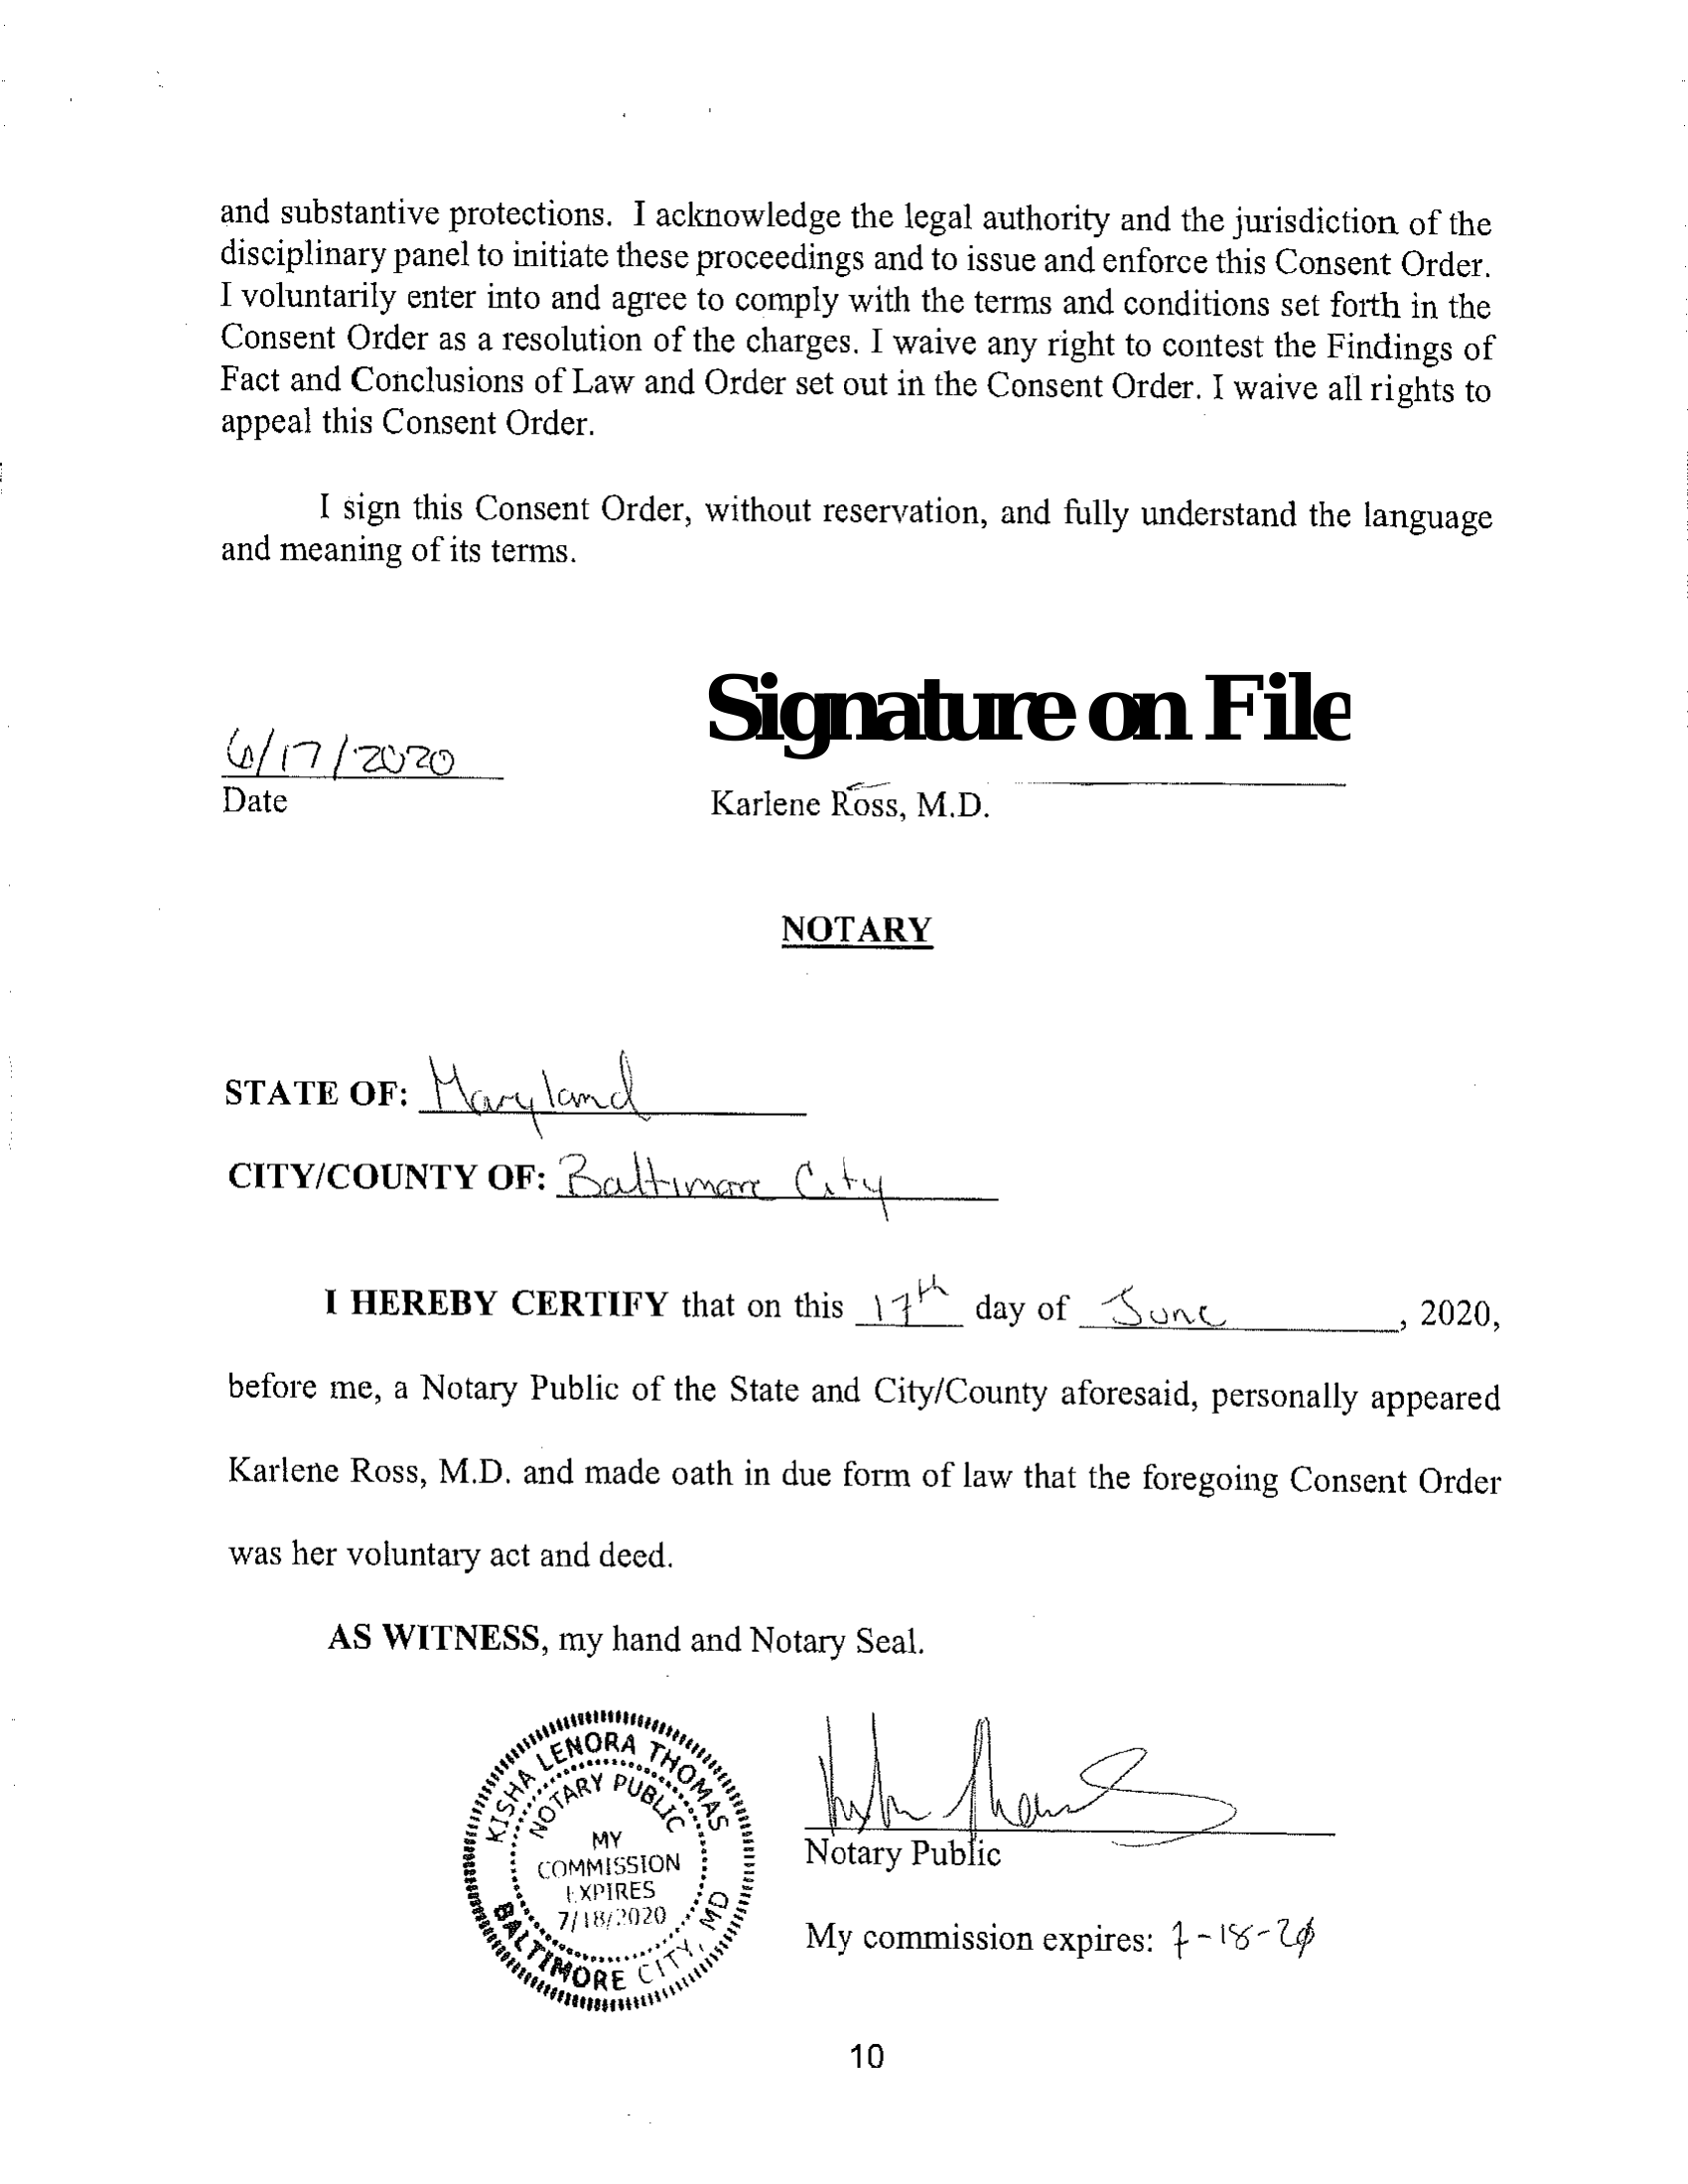 and substantive protections. I acknowledge the legal authority and the jurisdiction of the
disciplinary panel to initiate these proceedings and to issue and enforce this Consent Order.
I voluntarily enter into and agree to comply with the terms and conditions set forth in the
Consent Order as a resolution of the charges. I waive any right to contest the Findings of
Fact and Conclusions of Law and Order set out in the Consent Order. I waive all rights to
appeal this Consent Order.
I sign this Consent Order, without reservation, and fully understand the language
and meaning of its terms.
Signature on File
6/17/2020
Date
Karlene Ross, M.D.
NOTARY
STATE OF: Maryland
CITY/COUNTY OF: Baltimore City
I HEREBY CERTIFY that on this 17th day of June, 2020,
before me, a Notary Public of the State and City/County aforesaid, personally appeared
Karlene Ross, M.D. and made oath in due form of law that the foregoing Consent Order
was her voluntary act and deed.
AS WITNESS, my hand and Notary Seal.
KISHA LENORA THOMAS
NOTARY PUBLIC
MY
COMMISSION
EXPIRES
7/18/2020
BALTIMORE CITY, MD
Notary Public
My commission expires: 7-18-20
10